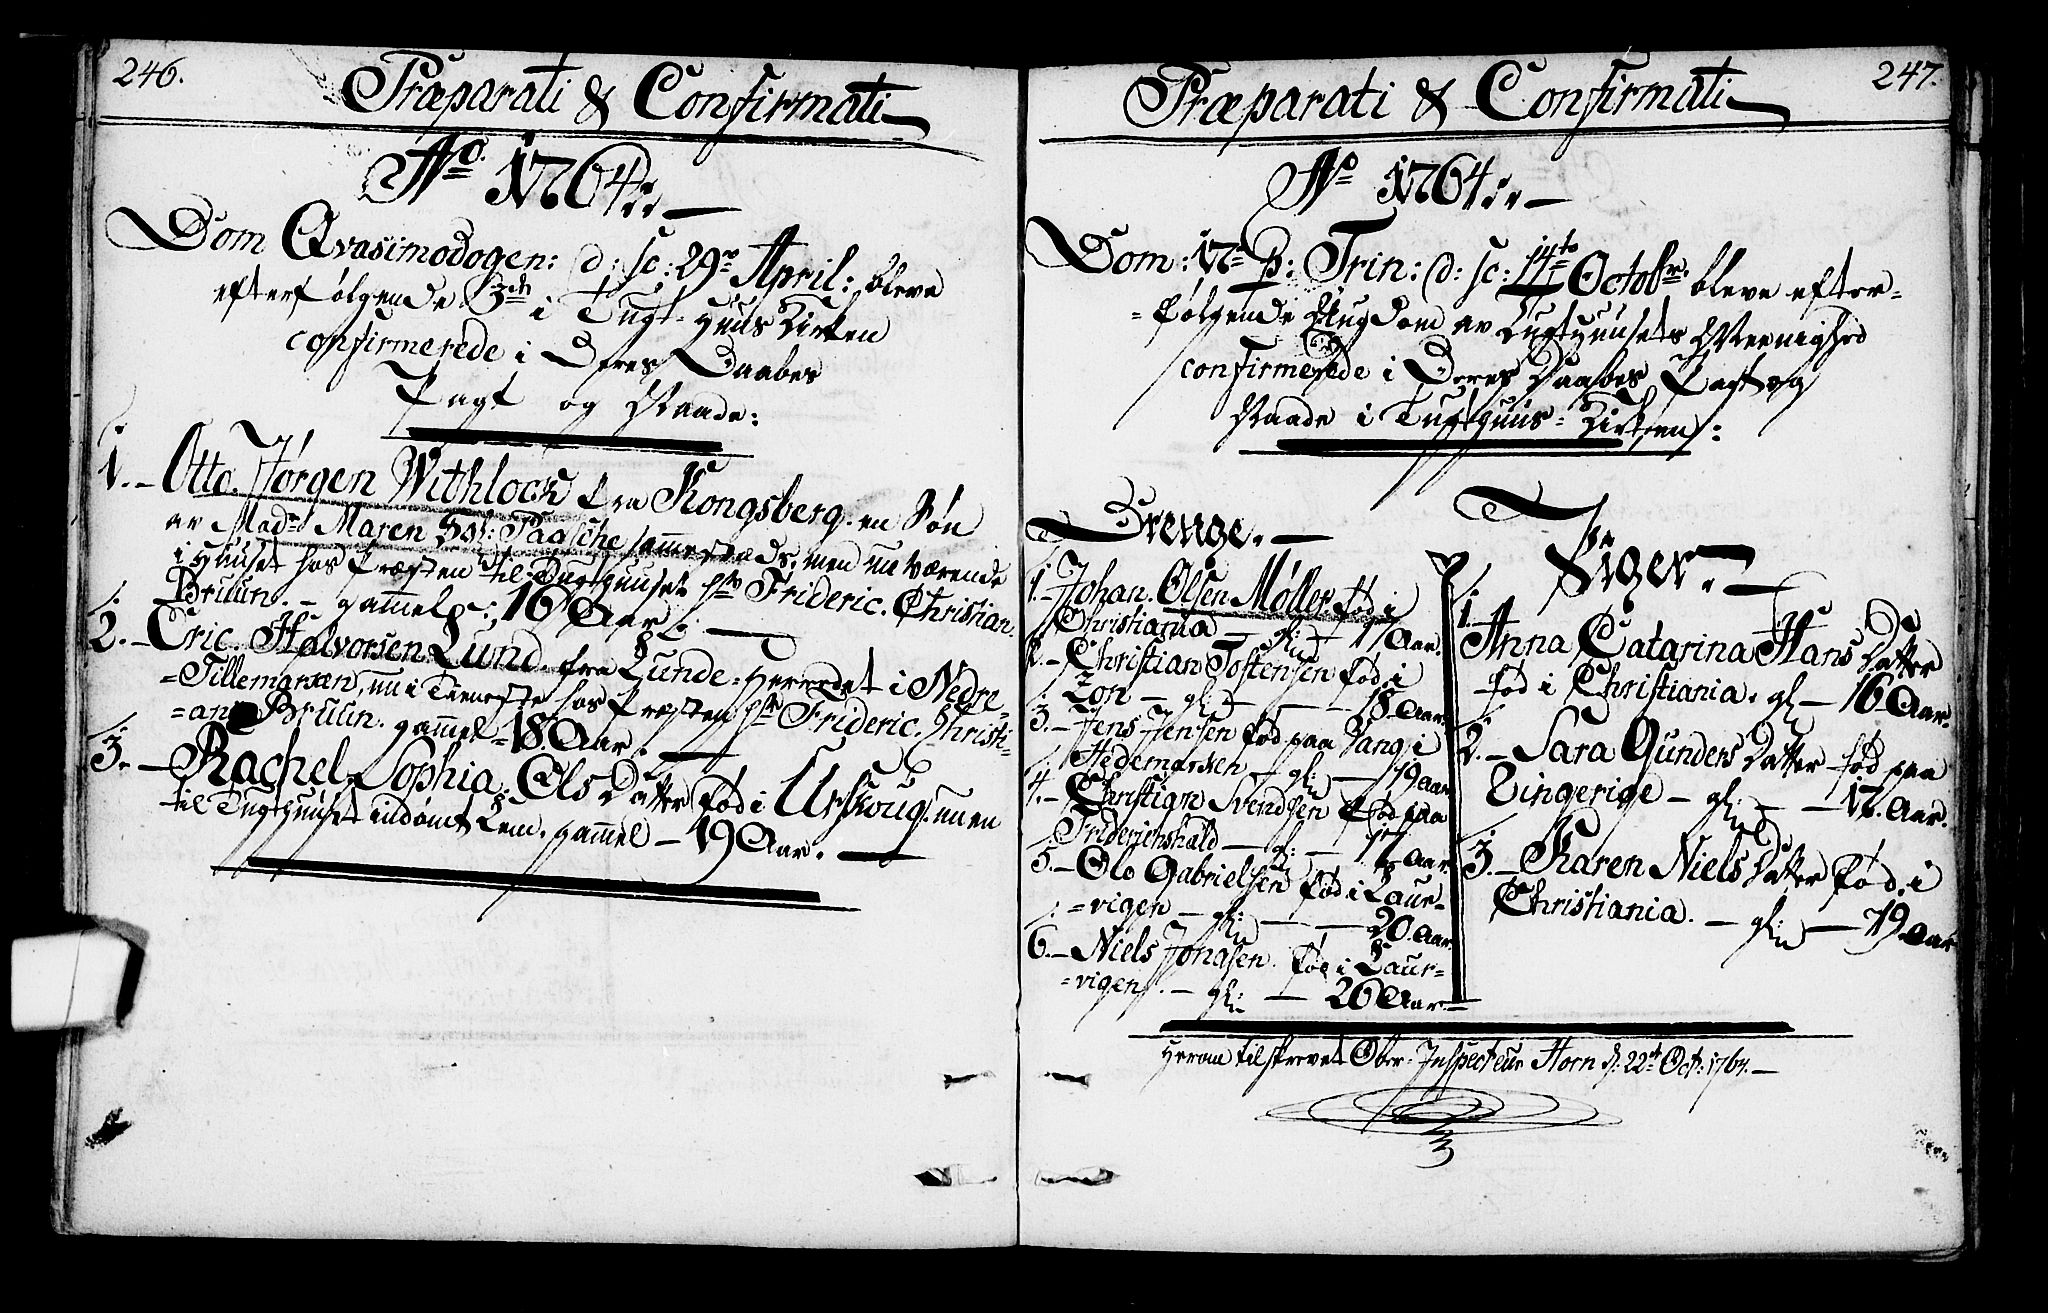 246.
Præparati & Confirmati
Ao. 1764.
Dom Qvasimodogen: d: sc: 29de April: bleve
efterfølgende 3de i Tugt-Huus Kirken
confirmerede i Deres Daabes
Pagt og Naade:
1. Otto Jørgen Withlock fra Kongsberg. en Søn
av Made Maren Paasche sammesteds, men nu værende
i Huuset hos Præsten til Tugthuuset Hr Frideric. Christian.
Bruun. gammel 16 Aar.
2. Eric. Halvorsen Lund. fra Lunde-Herredet i Nedre-
=Tillemarken, nu i Tieneste hos Præsten Hr Frideric. Christi-
=an Bruun. gammel 18 Aar.
3. Rachel Sophia Ols Datter fød i Urskoug. nu en
til Tugthuuset inddømt Lem. gammel - 19 Aar.
247.
Præparati & Confirmati
Ao 1764.
Dom: 17de p: Trin: d: sc: 14to Octobr. bleve efter-
=følgende Ungdom av Tugthuusets Meenighed
confirmerede i Deres Daabes Pagt og
Naade i Tugthuus-Kirken:
Drenge.
1. Johan. Olsen Møller fød i
Christiania - gl: 17 Aar.
2. Christian Tostensen fød. i
- gl: - 18 Aar.
3. Jens Jensen fød paa Vang i
Hedemarken - gl: - 19 Aar
4. Christian Svendsen fød paa
Friderichshald - gl: - 17 Aar.
5. Ole Gabrielsen fød i Laur-
=vigen - gl: - 20 Aar
6. Niels Jonasen. fød i Laur-
=vigen. - gl: - 26 Aar.
Piger.
1.
Anna Catarina Hans Datter
fød i Christiania. gl - 16 Aar.
2. Sara Gunders Datter fød paa
Ringerige - gl: - 17. Aar.
3. Karen Niels Datter fød. i
Christiania. - gl: - 19. Aar
Herom tilskrevet Ober-Inspecteur Horn d: 22de Oct: 1764.